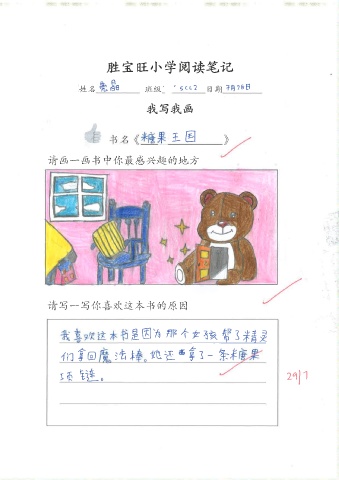 胜宝旺小学阅读笔记
姓名 亮晶 班级： 5CC2 日期 7月26日
我写我画
书名《 糖果王国 》
请画一画书中你最感兴趣的地方
请写一写你喜欢这本书的原因
我喜欢这本书是因为那个女孩帮了精灵
们拿回魔法棒。她还拿了一条糖果
项链。
29/7